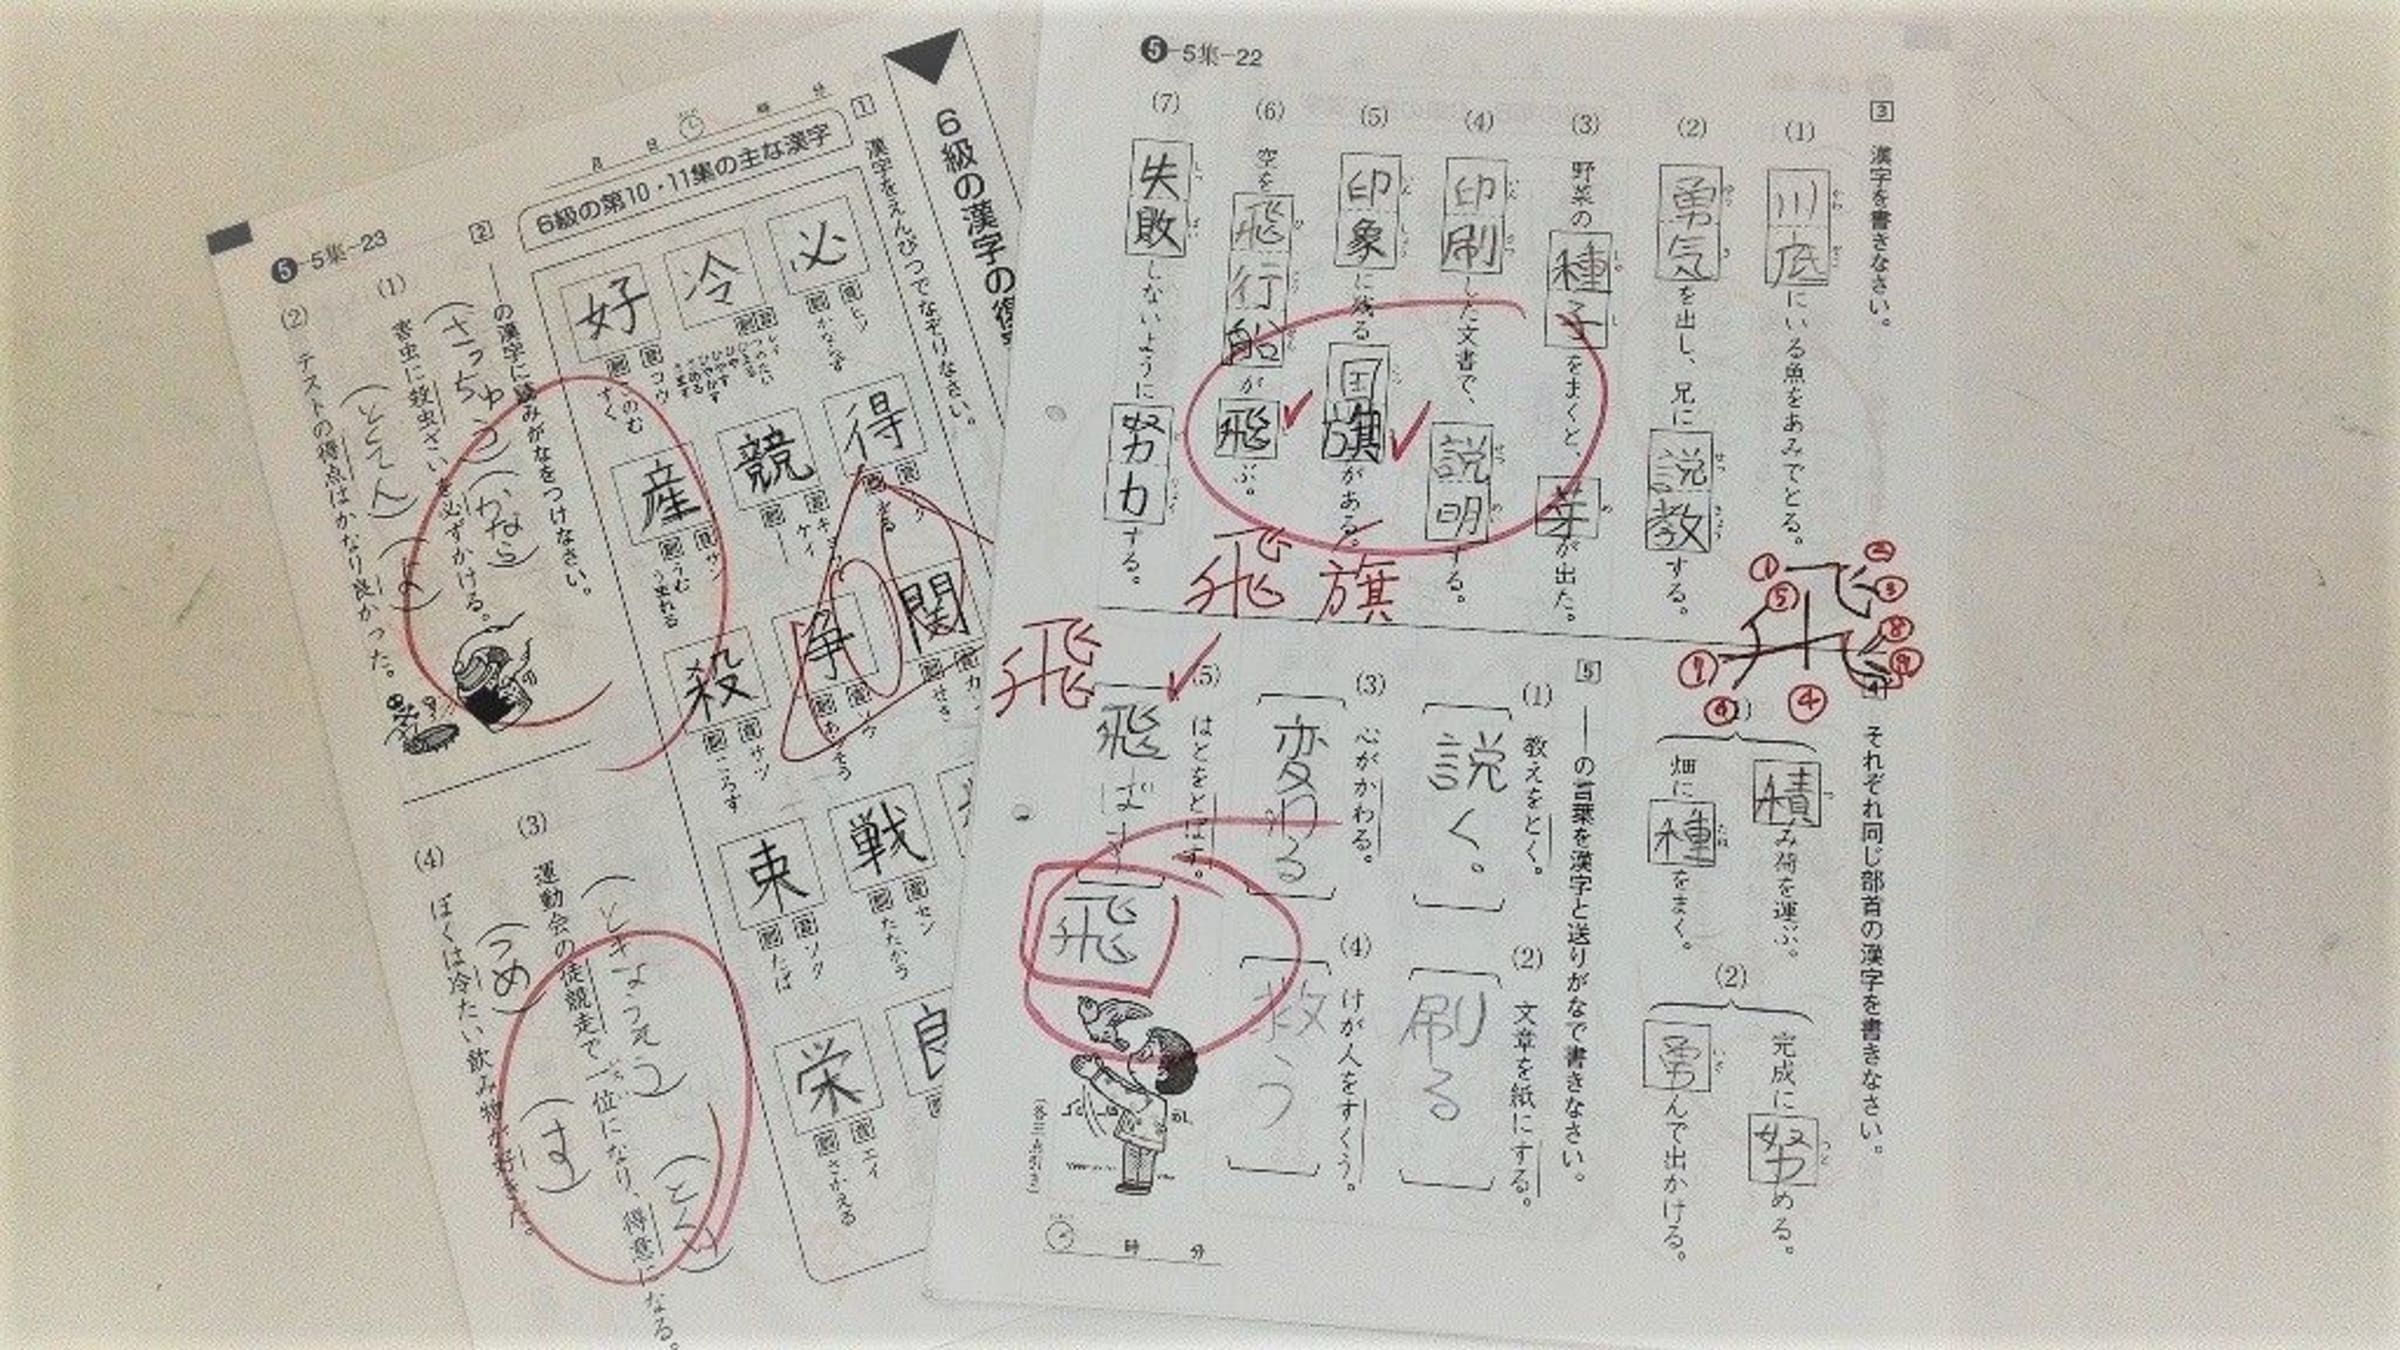 ❺-5集-22
3 漢字を書きなさい。
(1) 川底にいる魚をあみでとる。
(2) 勇気を出し、兄に説教する。
(3) 野菜の種子をまくと、芽が出た。
(4) 印刷した文書で、説明する。
(5) 印象に残る国旗がある。
(6) 空を飛行船が飛ぶ。
(7) 失敗しないように努力する。
飛 旗
① ② ③ ④ ⑤ ⑦ ⑧ ⑨
4 それぞれ同じ部首の漢字を書きなさい。
積み荷を運ぶ。
畑に種をまく。
(2)
完成に努める。
勇んで出かける。
5 ──の言葉を漢字と送りがなで書きなさい。
(1) 教えをとく。
説く。
(2) 文章を紙にする。
刷る
(3) 心がかわる。
変わる
(4) けが人をすくう。
救う
(5) はとをとばす。
飛ばす
飛
飛
時 分
6級の漢字の
1 漢字をえんぴつでなぞりなさい。
月 日 時 分
6級の第10・11集の主な漢字
必 ヒツ かならず
冷 レイ つめたい
好 コウ このむ すく
得
競 キョウ ケイ
産 サン うむ うまれる
関 せき
争 あらそう
殺 サツ ころす
戦 セン たたかう
束 ソク たば
良
栄 エイ さかえる
❺-5集-23
2 ──の漢字に読みがなをつけなさい。
(1) 害虫に殺虫ざいを必ずかける。
(さっちゅう) (かなら)
(2) テストの得点はかなり良かった。
(とくてん) (よ)
(3) 運動会の徒競走で一位になり、得意になる。
(4) ぼくは冷たい飲み物が好きだ。
(つめ) (す)